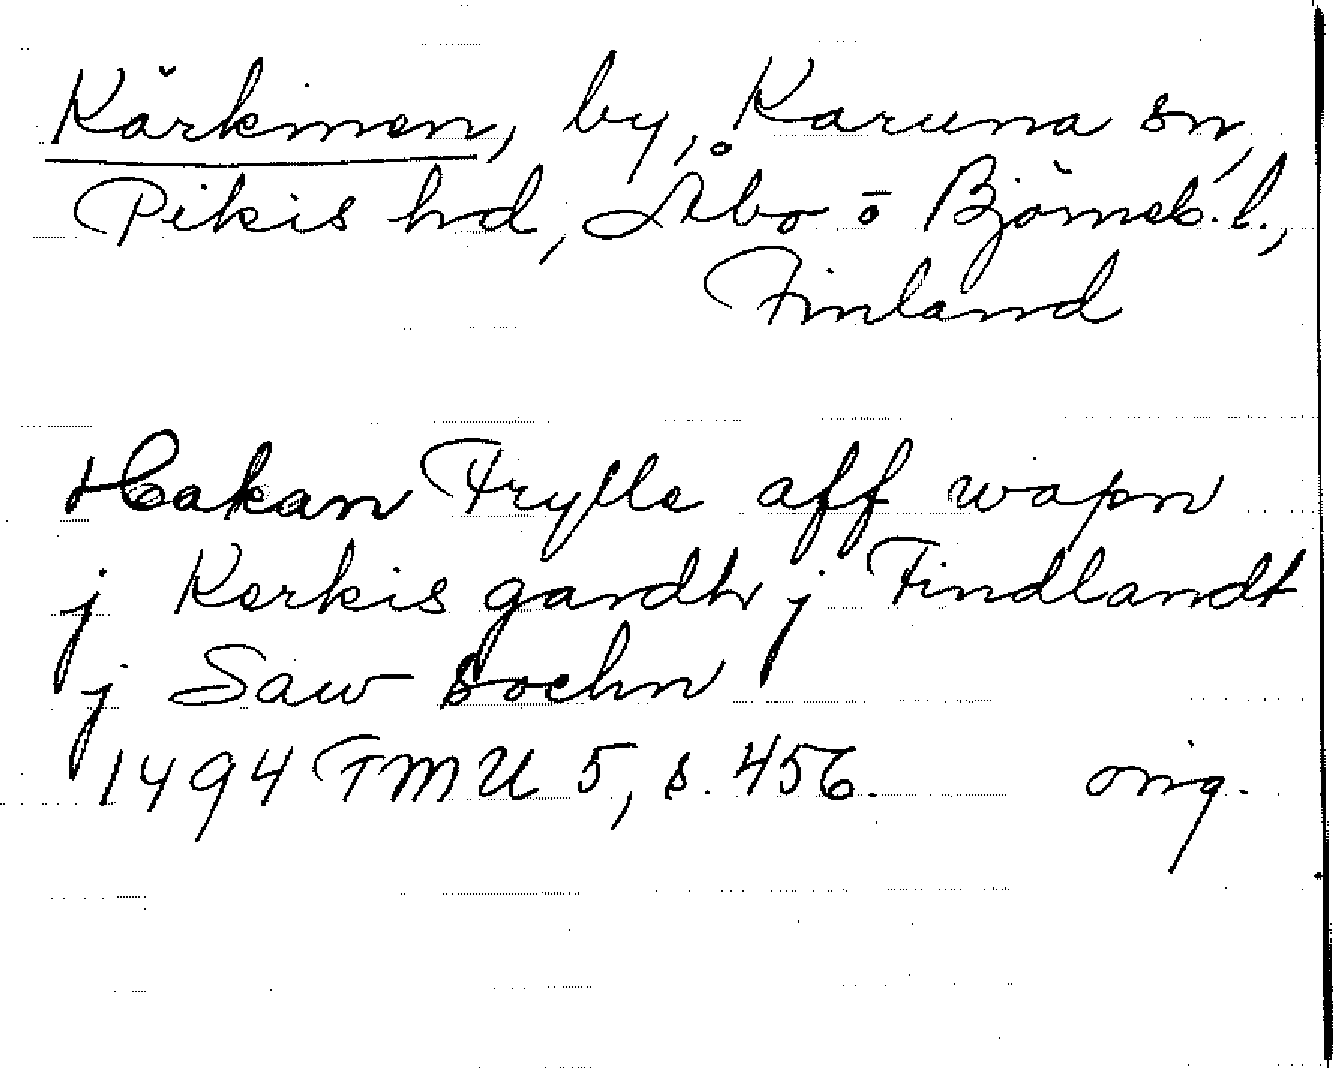 Kärkmen, by, Karuna sn,
Pikis hd, Åbo o Björneb. l.,
Finland
Hakan Frylle aff wapn
j Kerkis gardh j Findlandt
j Saw sochn
1494 FMU 5, s. 456. orig.